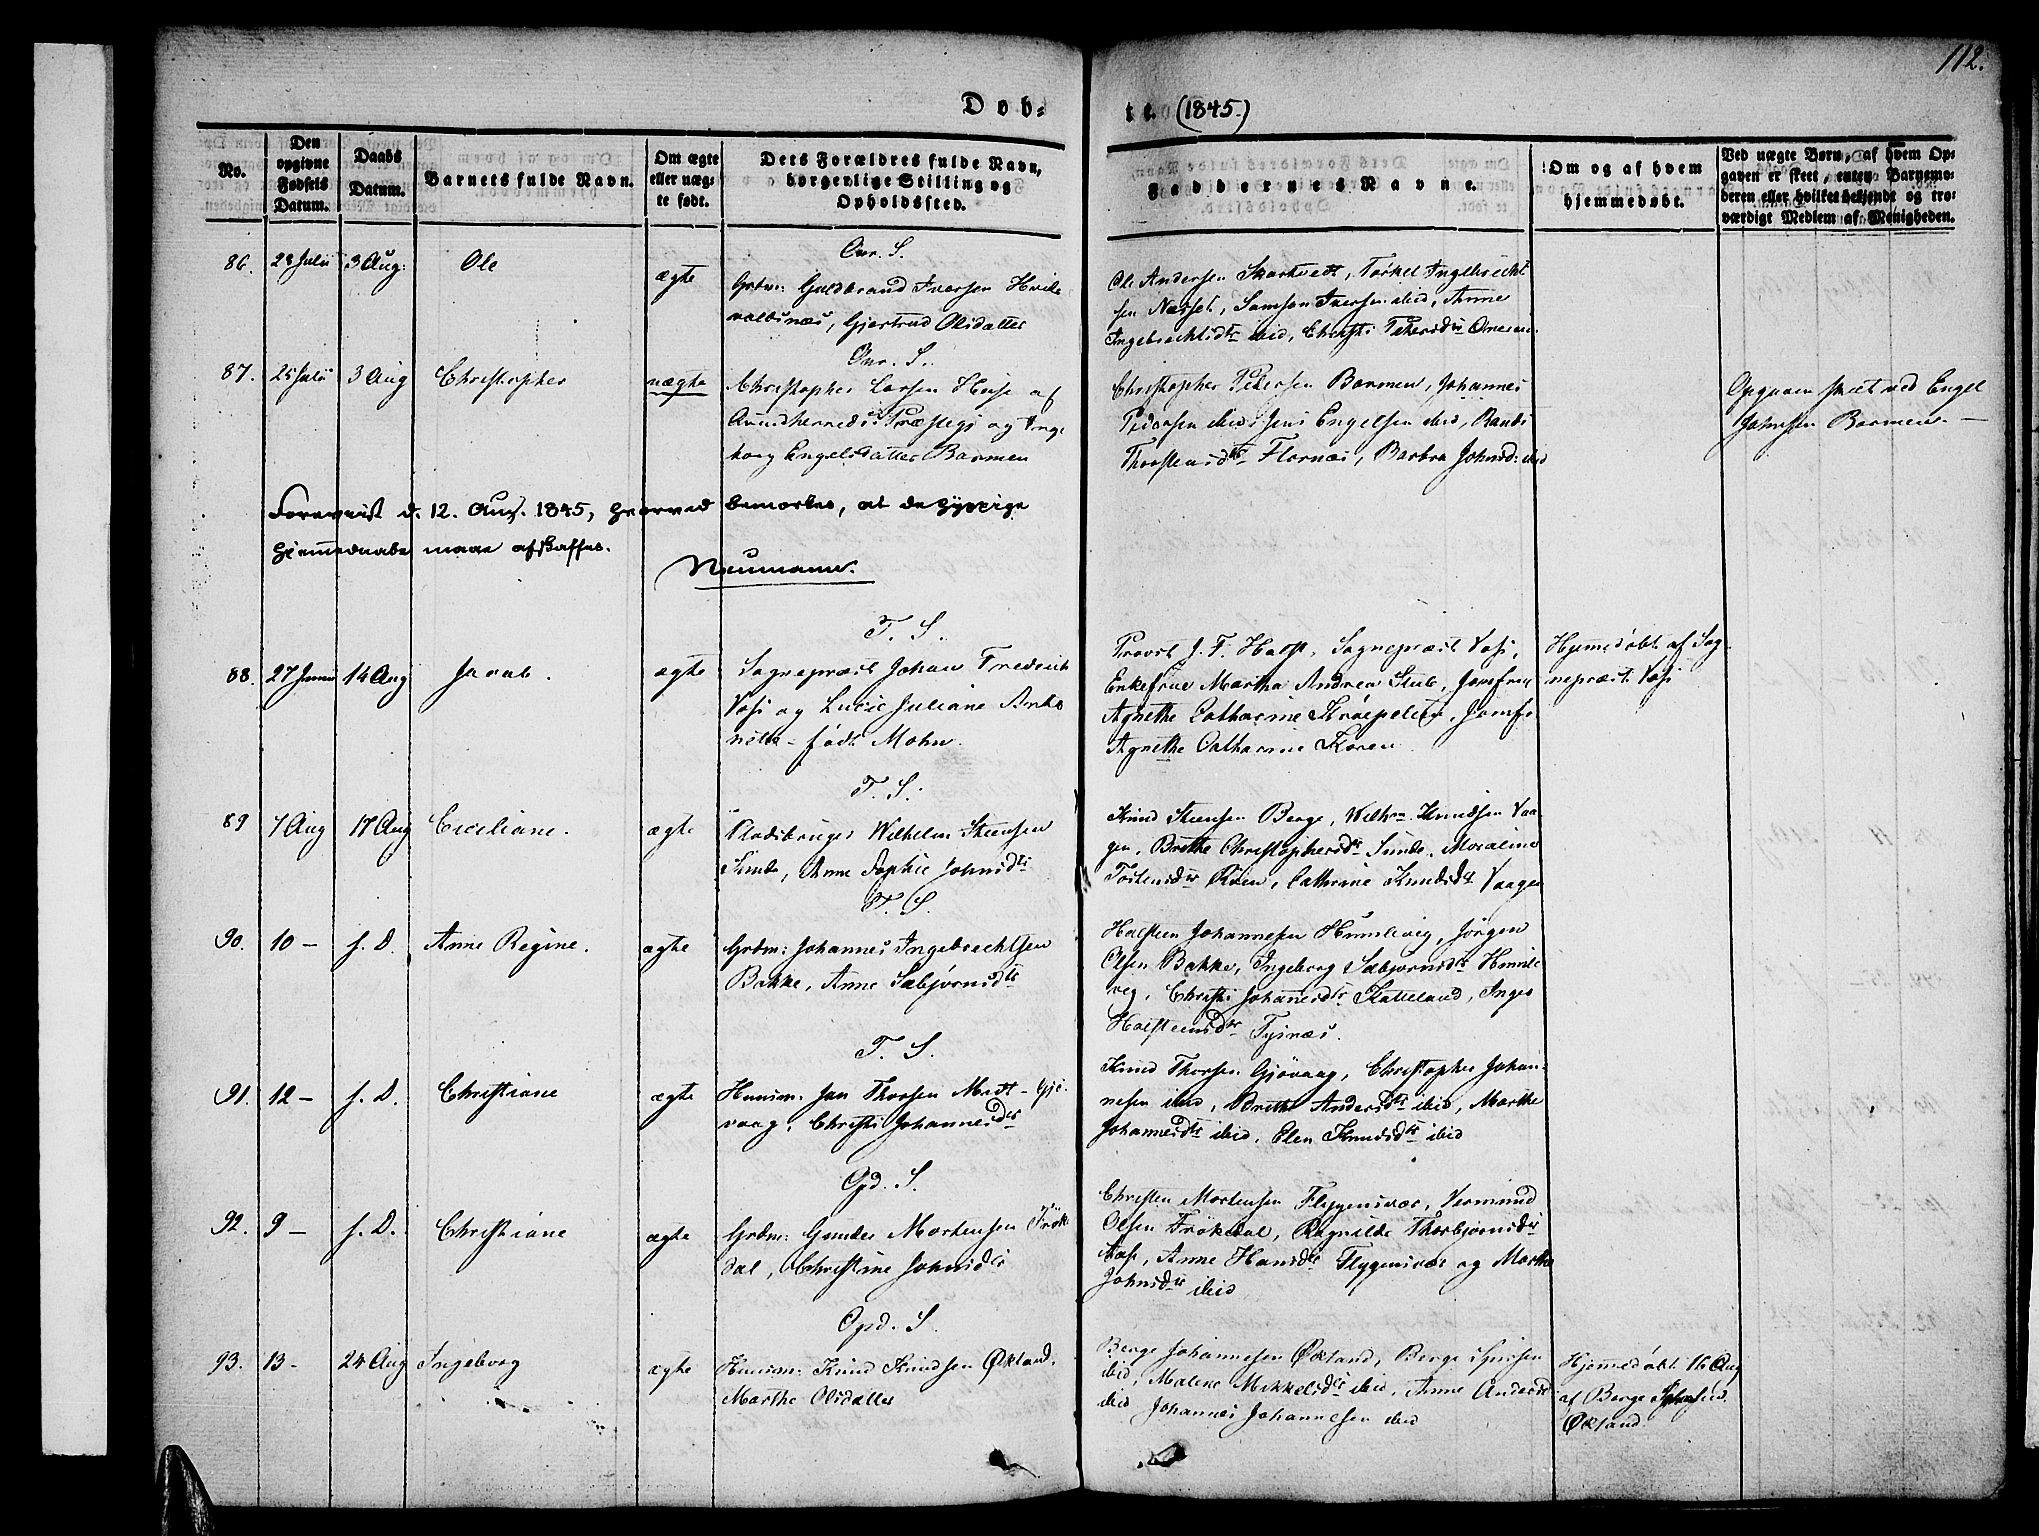 112.
Døb-
te. (1845.)
No.
Den
opgivne
Fødsels
Datum.
Daabs
Datum.
Barnets fulde Navn.
Om ægte
eller uæg-
te født.
Dets Forældres fulde Navn,
borgerlige Stilling og
Opholdssted.
Faddernes Navne.
Om og af hvem
hjemmedøbt.
Ved uægte Børn, af hvem Op-
gaven er skeet, enten Barnemo-
deren eller hvilket bekjendt og tro-
værdigt Medlem af Menigheden.
86. 23 Julii 3 Aug: Ole ægte
Onr. S.
Grdm: Guldbrand Iversen Hvide
næs, Gjertrud Olsdatter
Ole Andersen Skartvedt, Torkel Ingebrecht
sen Næsset, Samson Iversen ibid, Anne
Ingebrechtsdtr ibid, Christi Petersdtr
87. 25 Julii 3 Aug Christopher uægte
Onr. S.
Christopher Larsen Huse af
Præstegj og Inge
borg Engelsdatter Barmen
Christopher Pedersen Barmen, Johannes
Pedersen ibid, Jens Engelsen ibid, Randi
Thorstensdtr Flornæs, Barbra Johnsd: ibid
Opgaven skeet ved Engel
Johnsen Barmen. —
Foreviist d. 12. Aug. 1845, hvorved bemærkes, at de hyppige
Hjemmedaabe maae afskaffes.
Neumann.
88. 27 Junii 14 Aug Jacob. ægte
T. S.
Sognepræst Johan Frederik
Voss og Lucie Juliane Anto
nette – født Mohn.
Provst J. F. Sognepræst Voss,
Enkefrue Martha Andrea Stub, Jomfrue
Agnethe Catharine Jomfr
Agnethe Catharine Koren
Hjemedøbt af Sog
nepræst Voss
89 7 Aug 17 Aug Ceciliane. ægte
T. S.
Pladsbruger Wilhelm Steensen
Sunde, Anne Sophie Johnsdtr
Knud Steensen Berge, Wilhm Knudsen Vaa
gen, Brithe Christophersdtr Sunde,
Tostensdtr Cathrine Knudsdtr Vaagen
90. 10 – s. D. Anne Regine. ægte
T. S.
Grdm: Johannes Ingebrechtsen
Bakke, Anne Sæbjørnsdtr
Halsteen Johannesen Humlevig, Jørgen
Olsen Bakke, Ingeborg Sæbjørnsdtr Humle
vig, Christi Johannesdtr Inger
Halsteensdtr Tysnæs.
91. 12 – s. D. Christiane ægte
T. S.
Huusm: Jan Thorsen Midt – Gjø
vaag, Christi Johannesdtr
Knud Thorsen Gjøvaag, Christopher Johan-
nesen ibid, Brithe Andersdtr ibid, Marthe
Johannesdtr ibid, Elen Knudsdtr ibid
92. 9 – s. D. Christiane ægte
Opd. S.
Grdm: Gunder Mortensen Frøk
dal, Christine Johnsdtr
Christen Mortensen Flygensvær, Vermund
Olsen Frøkedal, Ragnilde Thorbjørnsdtr
Aase, Anne Hansdtr Flygensvær og Marthe
Johnsdtr ibid
93. 13 – 24 Aug Ingeborg ægte
Opd. S.
Huusm: Knud Knudsen Økland,
Marthe Olsdatter
Berge Johannesen Økland, Berge
ibid, Malene Mikkelsdtr ibid, Anne Andersd
ibid Johannes Johannesen ibid
Hjemedøbt 16 Aug
af Berge
Økland